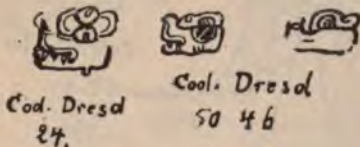 Cod. Dresd
24.
Cod. Dresd
50 46